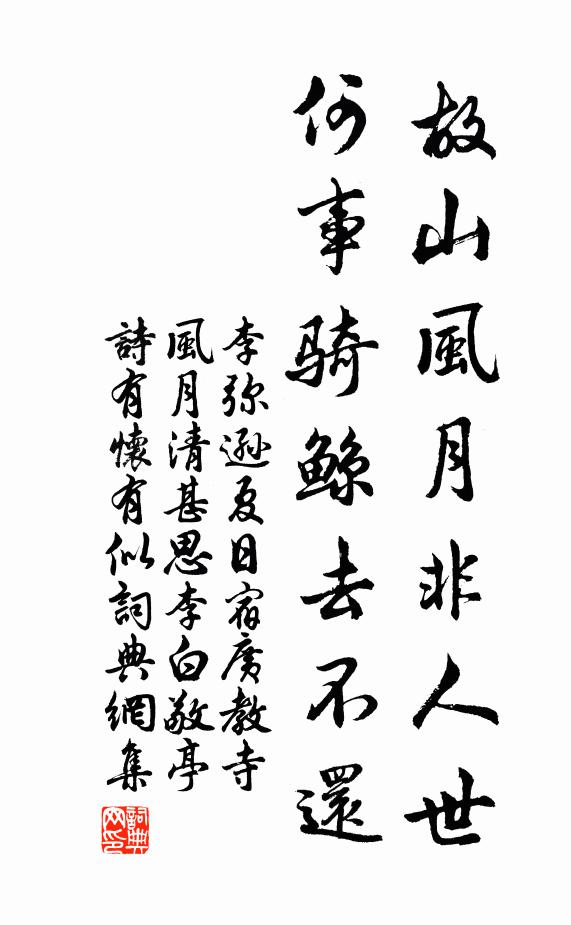 故山風月非人世
何事騎鯨去不還
李弥遜夏日宿廣教寺
風月清甚思李白敬亭
詩有懷有似詞典網集
詞典网印